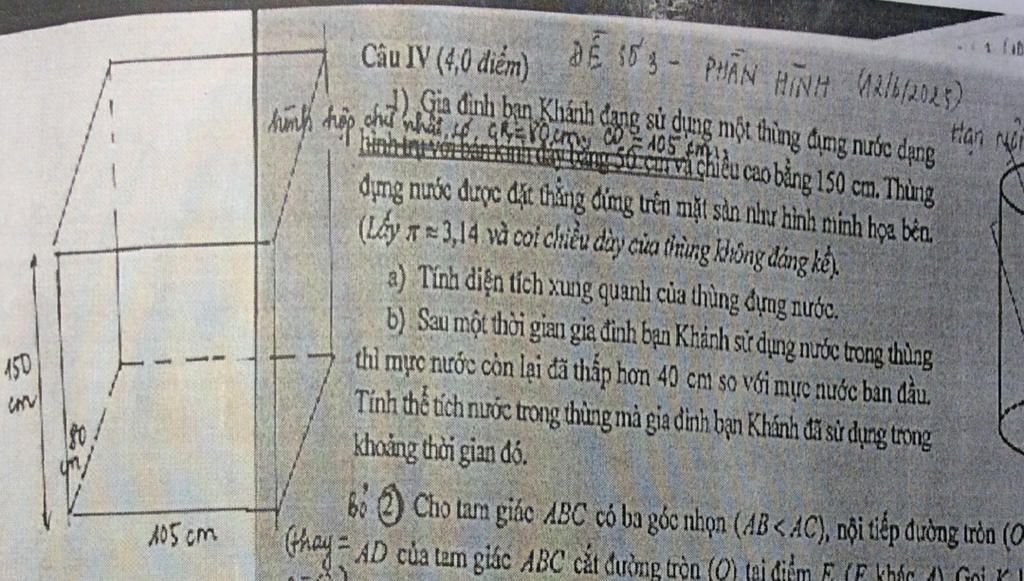 Câu IV (4,0 điểm) ĐỀ SỐ 3 - PHẦN HÌNH (12/6/2025)
1) Gia đình bạn Khánh đang sử dụng một thùng đựng nước dạng
hình hộp chữ nhật có CR = 80 cm, CD = 105 cm
hình trụ với bán kính đáy bằng 50 cm và chiều cao bằng 150 cm. Thùng
đựng nước được đặt thẳng đứng trên mặt sàn như hình minh họa bên.
(Lấy π ≈ 3,14 và coi chiều dày của thùng không đáng kể).
a) Tính diện tích xung quanh của thùng đựng nước.
b) Sau một thời gian gia đình bạn Khánh sử dụng nước trong thùng
thì mực nước còn lại đã thấp hơn 40 cm so với mực nước ban đầu.
Tính thể tích nước trong thùng mà gia đình bạn Khánh đã sử dụng trong
khoảng thời gian đó.
150
cm
80
cm
105 cm
Bỏ 2) Cho tam giác ABC có ba góc nhọn (AB < AC), nội tiếp đường tròn (O
(thay = AD của tam giác ABC cắt đường tròn (O) tại điểm